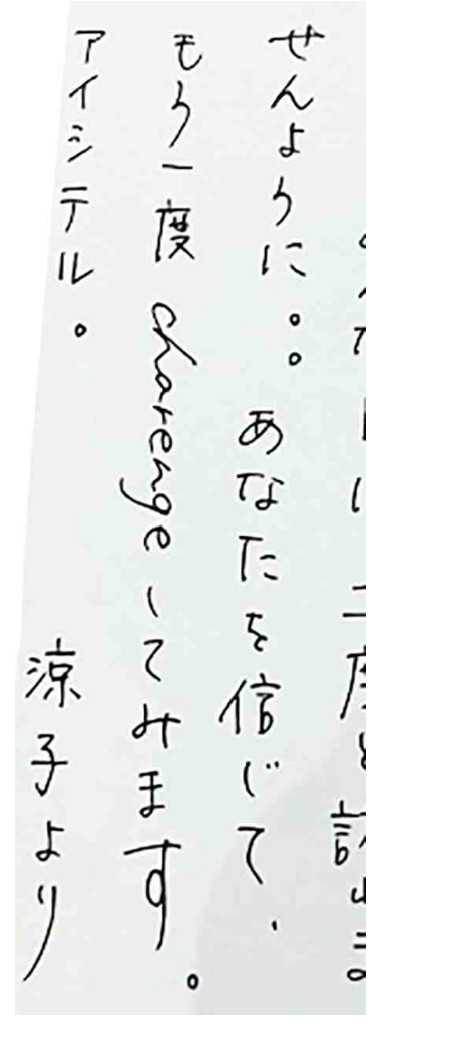 せんように。。あなたを信じて、
もう一度charengeしてみます。
アイシテル。
涼子より